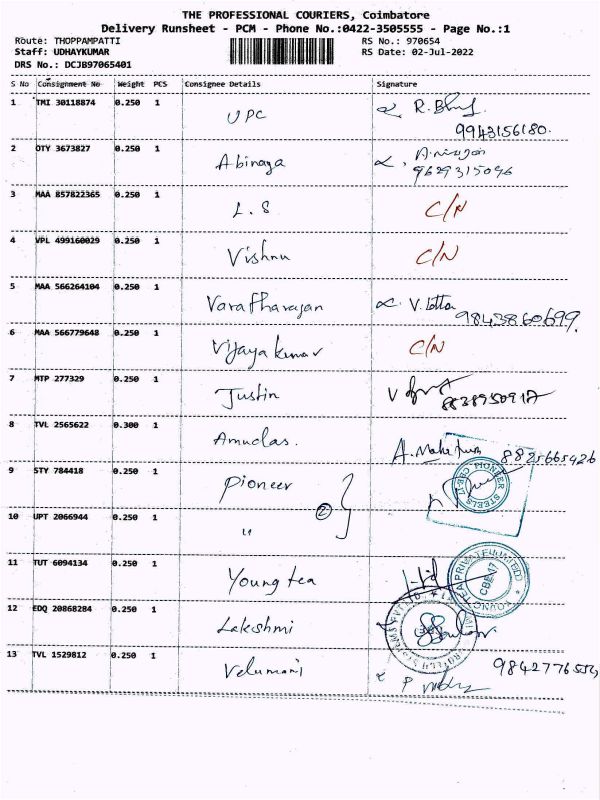 THE PROFESSIONAL COURIERS, Coimbatore
Delivery Runsheet - PCM - Phone No.:0422-3505555 - Page No.:1
Route: THOPPAMPATTI RS No.: 970654
Staff: UDHAYKUMAR RS Date: 02-Jul-2022
DRS No.: DCJB97065401
S No Consignment No Weight PCS Consignee Details Signature
1 TMI 30118874 0.250 1 UPC R. 
9943156180.
2 OTY 3673827 0.250 1 Abinaya
9629315096
3 MAA 857822365 0.250 1 L.S C/N
4 VPL 499160029 0.250 1 Vishnu C/N
5 MAA 566264104 0.250 1 Varatharajan V.
9843860699.
6 MAA 566779648 0.250 1 Vijaya kumar C/N
7 MTP 277329 0.250 1 Justin
8 TVL 2565622 0.300 1 Amudas. 8825665426
9 STY 784418 0.250 1 Pioneer
PIONEER STEELS CBE-17
2
10 UPT 2066944 0.250 1 "
11 TUT 6094134 0.250 1 Young tea
YOUNG TEA PRIVATE LIMITED CBE-17
12 EDQ 20868284 0.250 1 Lakshmi
13 TVL 1529812 0.250 1 Velumani P